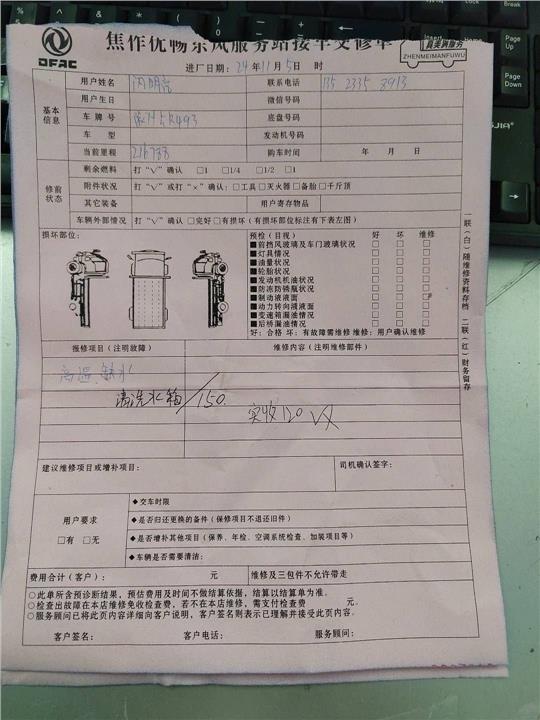 焦作优畅东风服务站接车交修单
DFAC
真美满服务
ZHENMEIMANFUWU
进厂日期：24年11月5日 时
基本信息
用户姓名 闪明亮 联系电话 135 2335 8913
用户生日 微信号码
车牌号 底盘号码
车型 发动机号码
当前里程 216788 购车时间 年 月 日
修前状态
剩余燃料 打“√”确认 □1 □1/4 □1/2 □1
附件状况 打“√”或打“×”确认：□工具 □灭火器 □备胎 □千斤顶
其它装备 用户寄存物品
车辆外部情况 打“√”确认 □完好 □有损坏（有损坏部位标注有下表左图）
损坏部位： 预检（目视） 好 坏 维修
■前挡风玻璃及车门玻璃状况 □ □ □
■灯具情况 □ □ □
■油量状况 □ □ □
■轮胎状况 □ □ □
■发动机机油状况 □ □ □
■防冻防锈瓶状况 □ □ □
■制动液液面 □ □ □
■动力转向液液面 □ □ □
■变速箱漏油情况 □ □ □
■后桥漏油情况 □ □ □
好：合格 坏：有故障需维修 维修：用户确认维修
一联（白）随维修资料存档 二联（红）财务留存
报修项目（注明故障） 维修内容（注明维修部件）
高温 缺水
清洗水箱/150.
实收120
建议维修项目或增补项目： 司机确认签字：
用户要求
□有 □无
◆交车时限
◆是否归还更换的备件（保修项目不退还旧件）
◆是否增补其他项目（保养、年检、空调系统检查、加装项目等）
◆车辆是否需要清洁：
费用合计（客户）： 元 维修及三包件不允许带走
○此单所含预诊断结果，预估费用及时间不做结算依据，结算以结算单为准。
○检查出故障在本店维修免收检查费，若不在本店维修，需支付检查费 元。
○服务顾问已将此页内容详细向客户说明，客户签名则表示已理解并接受此页内容。
客户签名： 客户电话： 服务顾问：
PrtSc
Page Up
Page Down
End